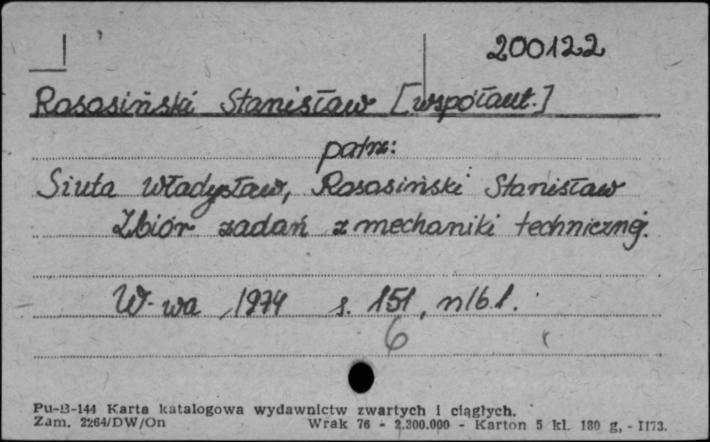 200122
Rososiński Stanisław [współaut.]
patrz:
Siuta Władysław, Rososiński Stanisław
Zbiór zadań z mechaniki technicznej.
W-wa, 1974 s. 151, nlb 1.
6
Pu-B-144 Karta katalogowa wydawnictw zwartych i ciągłych.
Zam. 2264/DW/On Wrak 76 - 2.300.000 - Karton 5 kl. 180 g, - II73.